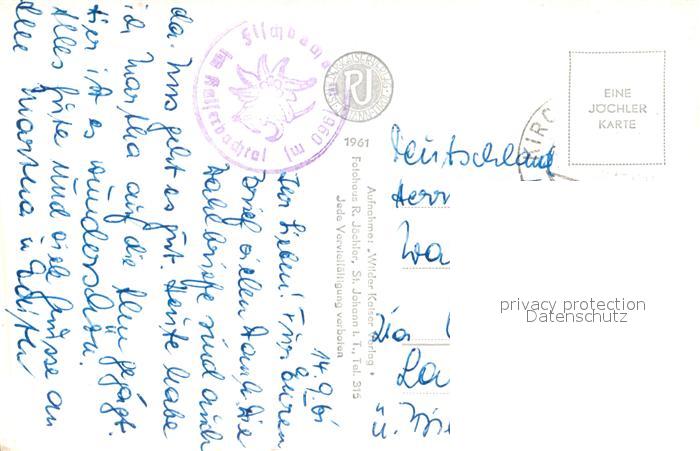 14.9.61
Ihr Lieben! Für Euren
Brief vielen Dank. Die
sind auch
da. Uns geht es gut. Heute habe
ich Martha auf die Alm gejagt.
Hier ist es wunderschön.
Alles Gute und viele Grüsse an
alle Martha u.
Fischbach
im Kaiserbachtal
960 m
RJ
1961
Aufnahme: „Wilder Kaiser Verlag"
Fotohaus R. Jöchler, St. Johann i. T., Tel. 315
Jede Vervielfältigung verboten
EINE
JÖCHLER
KARTE
KIRC
Deutschland
Herr
Wa
La
privacy protection
Datenschutz